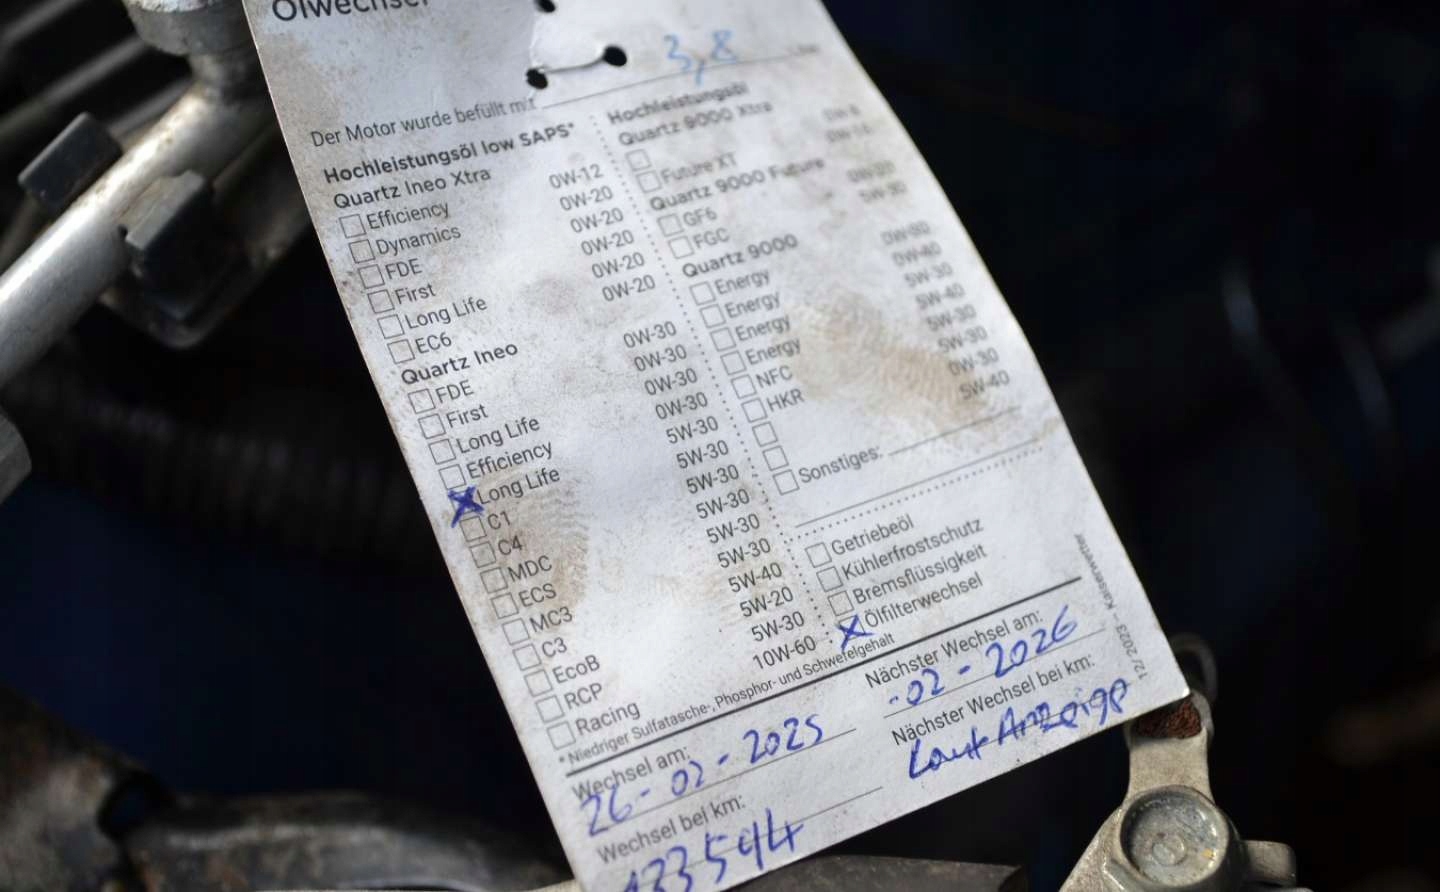 Ölwechsel
3,8
Der Motor wurde befüllt mit
Hochleistungsöl low SAPS*
Quartz Ineo Xtra
Efficiency 0W-12
Dynamics 0W-20
FDE 0W-20
First 0W-20
Long Life 0W-20
EC6 0W-20
Quartz Ineo
FDE 0W-30
First 0W-30
Long Life 0W-30
Efficiency 0W-30
Long Life 5W-30
C1 5W-30
C4 5W-30
MDC 5W-30
ECS 5W-30
MC3 5W-30
C3 5W-40
EcoB 5W-20
RCP 5W-30
Racing 10W-60
Hochleistungsöl
Quartz 9000 Xtra
Future XT
Quartz 9000 Future
GF6 0W-20
FGC 5W-30
Quartz 9000
Energy 0W-30
Energy 0W-40
Energy 5W-30
Energy 5W-40
NFC 5W-30
HKR 5W-30
0W-30
5W-40
Sonstiges:
Getriebeöl
Kühlerfrostschutz
Bremsflüssigkeit
Ölfilterwechsel
* Niedriger Sulfatasche-, Phosphor- und Schwefelgehalt
Wechsel am:
26-02-2025
Wechsel bei km:
133544
Nächster Wechsel am:
-02-2026
Nächster Wechsel bei km:
Laut Anzeige
12/2023 – Kaiserwetter